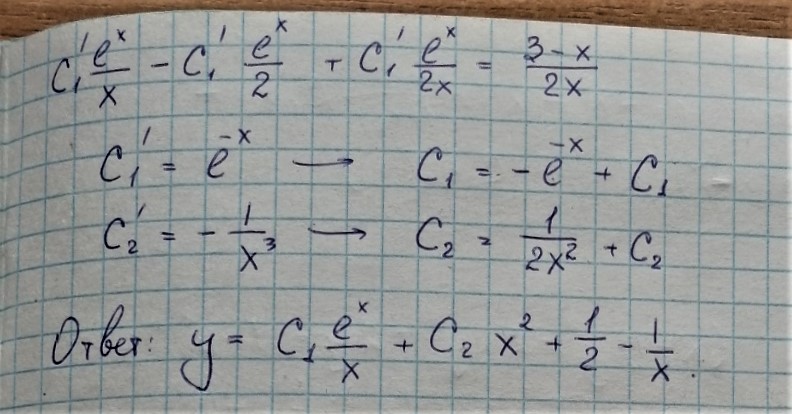 C₁' e^x/x − C₁' e^x/2 + C₁' e^x/2x = 3−x/2x
C₁' = e^−x → C₁ = −e^−x + C₁
C₂' = −1/x³ → C₂ = 1/2x² + C₂
Ответ: y = C₁ e^x/x + C₂ x² + 1/2 − 1/x.